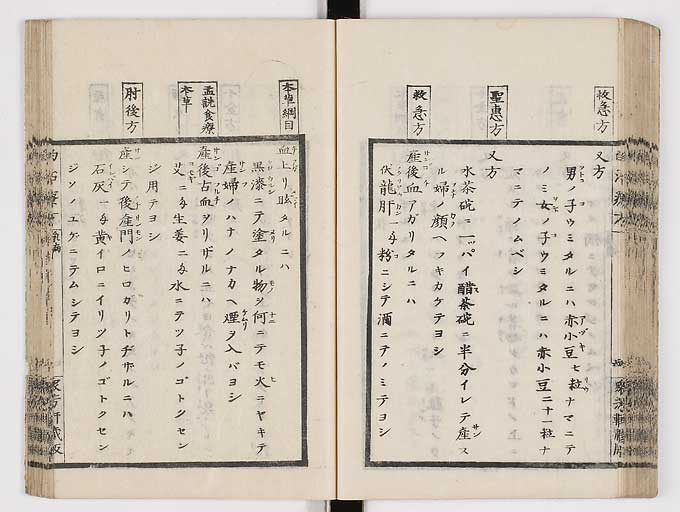 救急方
又方
男ノ子ウミタルニハ赤小豆七粒ナマニテ
ノミ女ノ子ウミタルニハ赤小豆二十一粒ナ
マニテノムベシ
聖惠方
又方
水茶碗ニ一ッパイ醋茶碗ニ半分イレテ産ス
ル婦ノ顔ヘフキカケテヨシ
救急方
産後血アガリタルニハ
伏龍肝一匁粉ニシテ酒ニテノミテヨシ
本草綱目
血上リ眩タルニハ
黒漆ニテ塗タル物ヲ何ニテモ火ニヤキテ
産婦ノハナノナカヘ煙ヲ入バヨシ
孟詵食療本草
産後古血ヲリザルニハ
艾二匁生姜二匁水ニテツ子ノゴトクセン
ジ用テヨシ
肘後方
産シテ後産門ノヒロガリトヂザルニハ
石灰一匁黄イロニイリツ子ノゴトクセン
ジソノユゲニテムシテヨシ